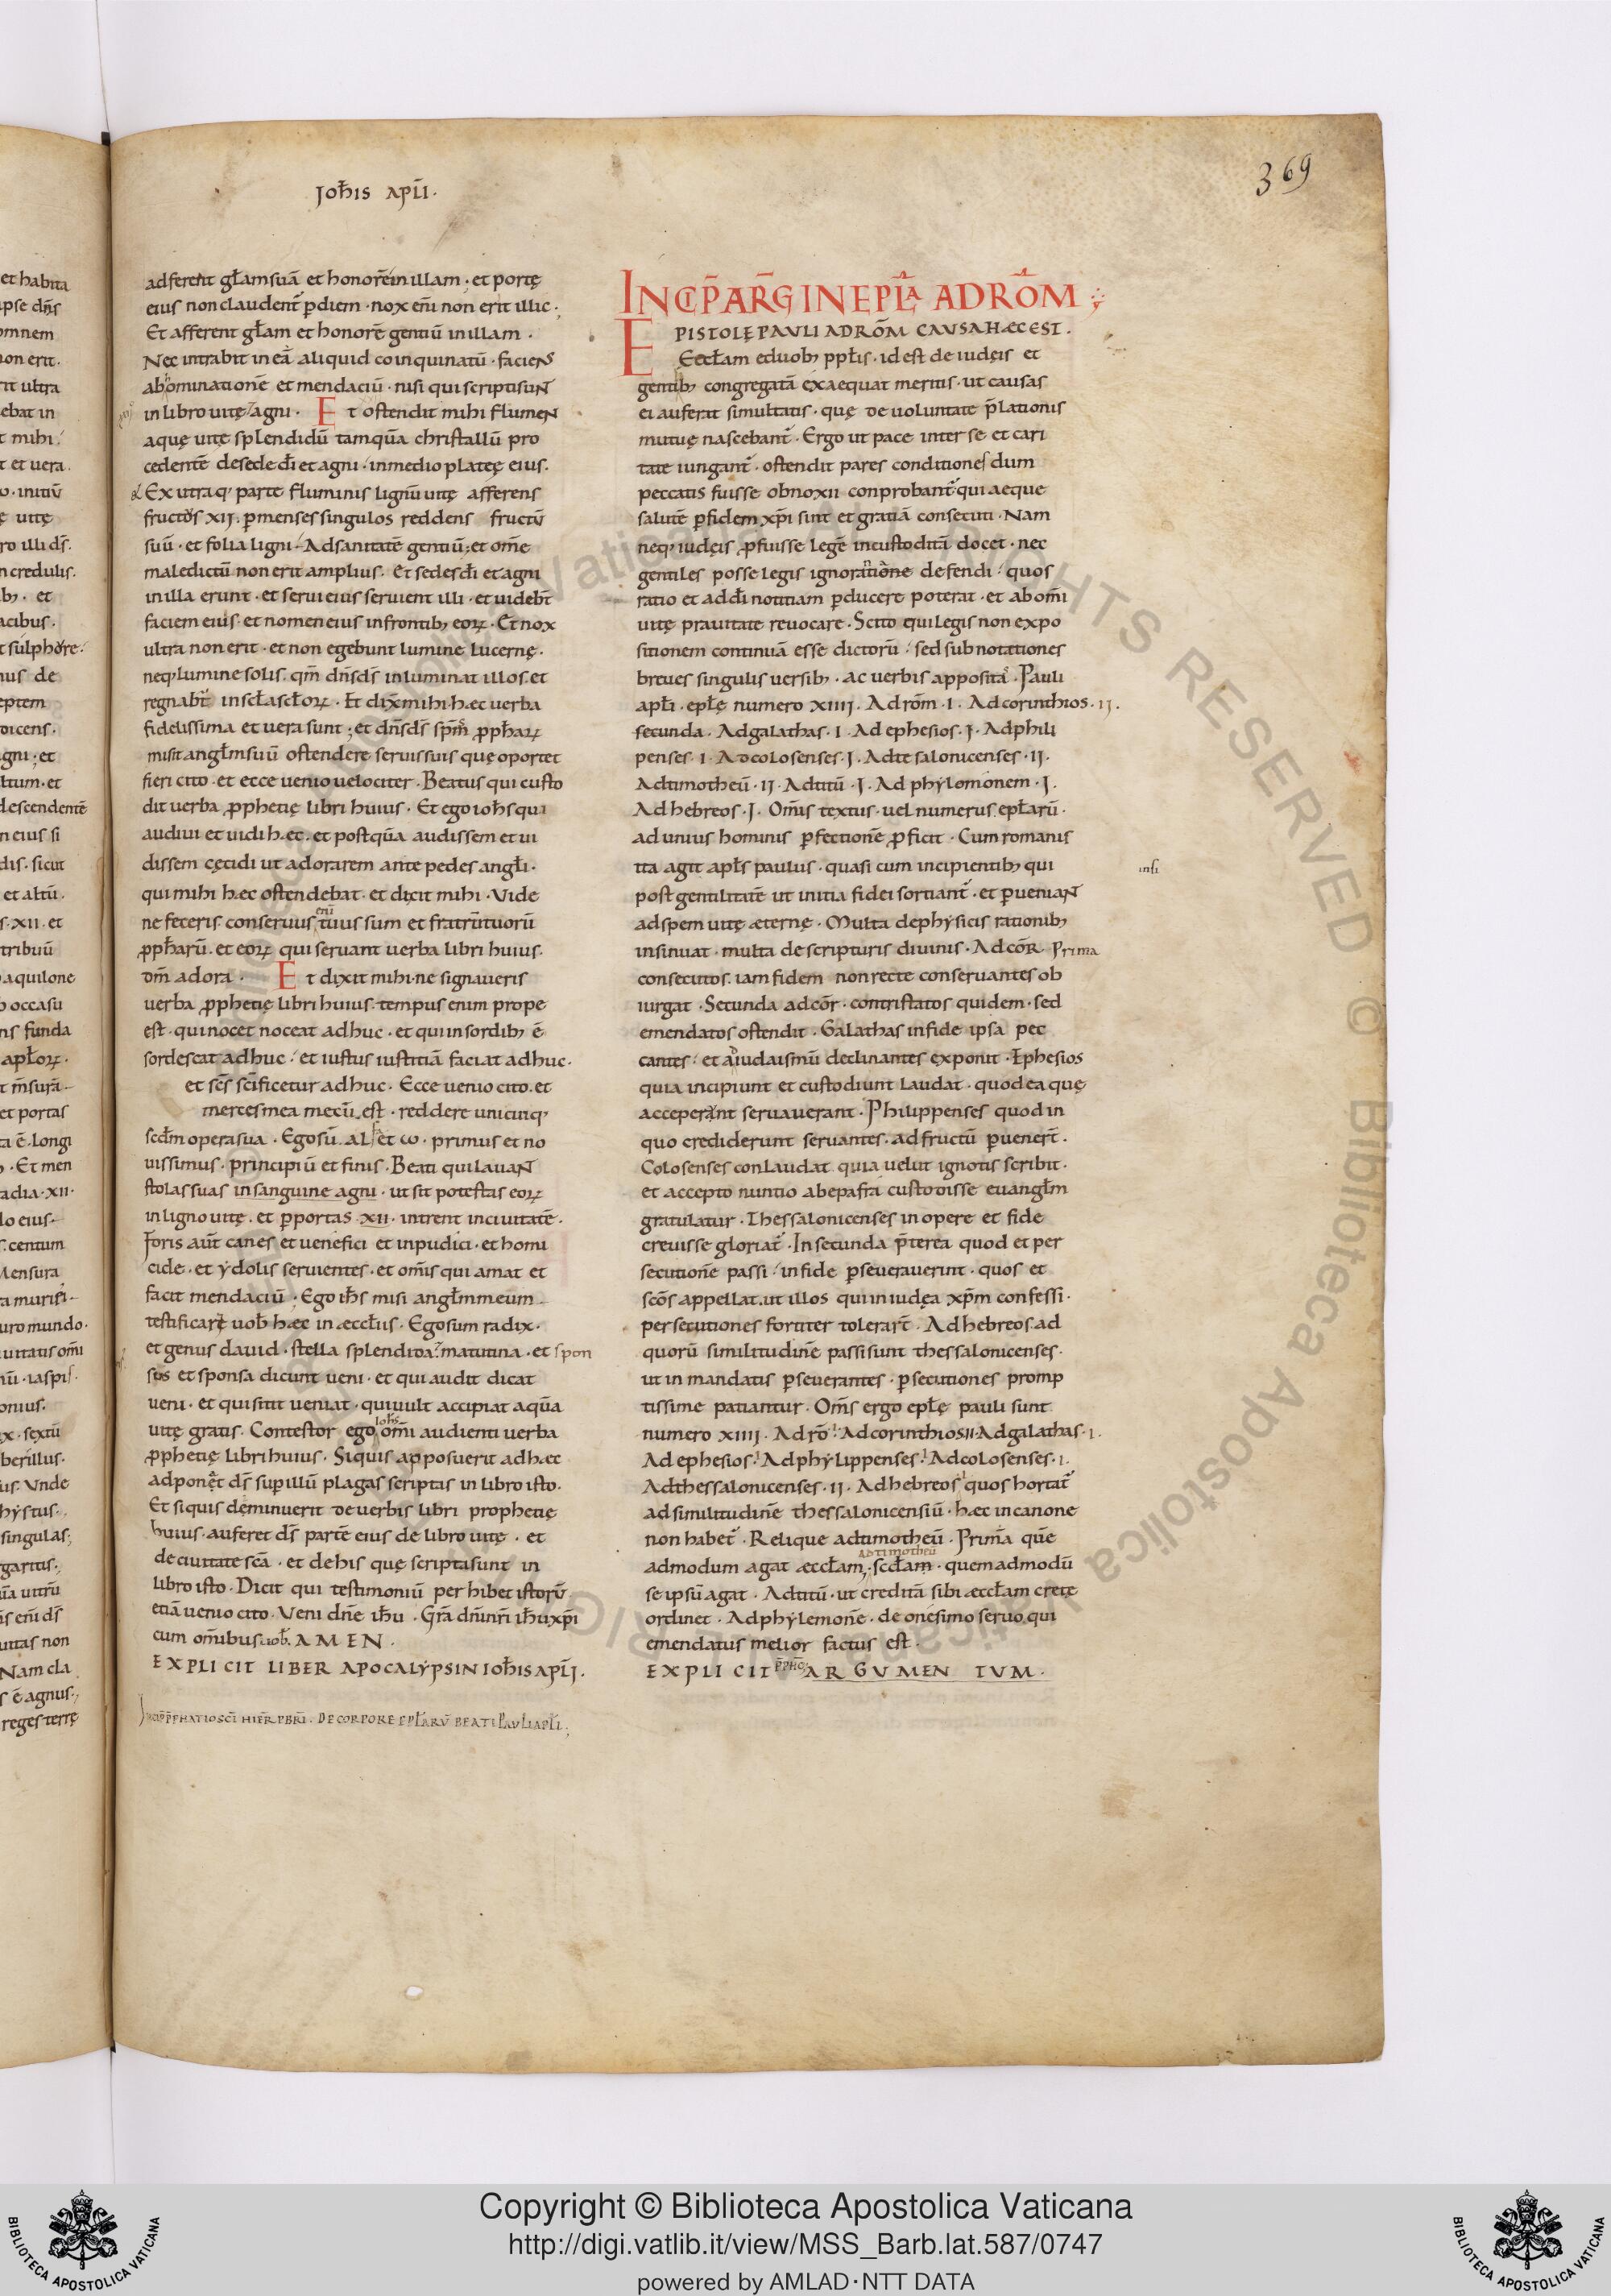 Joh̅is apl̅i.
369
adferent gl̅am suā et honorē in illam. et portę
eius non claudent̅ p̱ diem. nox eni̅ non erit illic.
Et afferent gl̅am et honorē gentiū in illam.
Nec intrabit in eā aliquid coinquinatū. faciens
abominationē et mendaciū. nisi qui scripti sunt
in libro uitę agni. Et ostendit mihi flumen
aquę uitę splendidū tamquā christallū pro
cedentē de sede di̅ et agni. in medio plateę eius.
Ex utraq; parte fluminis lignū uitę afferens
fructos XII. p̱ menses singulos reddens fructū
suū. et folia ligni Ad sanitatē gentiū; et om̅e
maledictū non erit amplius. Et sedes di̅ et agni
in illa erunt. et serui eius seruient illi. et uideb̅t
faciem eius. et nomen eius in frontib; eoꝝ. Et nox
ultra non erit. et non egebunt lumine lucernę.
neq; lumine solis. qm̅ dn̅s ds̅ inluminat illos. et
regnab̅t in scl̅a scl̅oꝝ. Et dix̅ mihi. hæc uerba
fidelissima et uera sunt; et dn̅s ds̅ spm̅ ꝓph̅aꝝ
misit angl̅m suū ostendere seruis suis quę oportet
fieri cito. et ecce uenio uelociter. Beatus qui custo
dit uerba ꝓphetię libri huius. Et ego ioh̅s qui
audiui et uidi hæc. et postquā audissem et ui
dissem cecidi ut adorarem ante pedes angl̅i.
qui mihi hæc ostendebat. et dicit mihi. Vide
ne feceris. conseruus eni̅ tuus sum et fratrū tuorū
ꝓph̅arū. et eoꝝ qui seruant uerba libri huius.
dm̅ adora. Et dixit mihi. ne signaueris
uerba ꝓphetię libri huius. tempus enim prope
est. qui nocet noceat adhuc. et qui in sordib; ē
sordescat adhuc. et iustus iustitiā faciat adhuc.
et sc̅s sc̅ificetur adhuc. Ecce uenio cito. et
merces mea mecū est. reddere unicuiq;
scd̅m opera sua. Ego sū. Alfa et ω. primus et no
uissimus. principiū et finis. Beati qui lauant
stolas suas in sanguine agni. ut sit potestas eoꝝ
in ligno uitę. et p̱ portas XII. intrent in ciuitatē.
Foris aut̅ canes et uenefici et inpudici. et homi
cide. et ydolis seruientes. et om̅is qui amat et
facit mendaciū; Ego ih̅s misi angl̅m meum
testificare uob̅ hæc in æccl̅iis. Ego sum radix.
et genus dauid. stella splendida matutina. et spon
sus et sponsa dicunt ueni. et qui audit dicat
ueni. et qui sitit ueniat. qui uult accipiat aquā
uitę gratis. Contestor ego ioh̅s om̅i audienti uerba
ꝓphetię libri huius. Siquis apposuerit ad hæc
adponet ds̅ sup̱ illū plagas scriptas in libro isto.
Et siquis deminuerit de uerbis libri prophetię
huius. auferet ds̅ partē eius de libro uitę. et
de ciuitate scā. et de his quę scripta sunt in
libro isto. Dicit qui testimoniū perhibet istorū
etiā uenio cito. Veni dn̅e ih̅u. Gr̅a dn̅i nr̅i ih̅u xp̅i
cum om̅ibus uob̅. AMEN.
EXPLICIT LIBER APOCALYPSIN IOH̅IS APL̅I.
DE CORPORE EPL̅ARV̅ BEATI PAVLI APL̅I;
INCIP̅ ARG̅ IN EPL̅A AD ROM̅;
EPISTOLĘ PAVLI AD ROM̅ CAVSA HÆC EST.
Eccl̅am e duob; ppl̅is. id est de iudęis et
gentib; congregatā exaequat meritis. ut causas
ei auferat simultatis. quę de uoluntate p̅lationis
mutuę nascebant̅. Ergo ut pace inter se et cari
tate iungant̅. ostendit pares conditiones dum
peccatis fuisse obnoxii conprobant̅ qui aeque
salutē p̱ fidem xp̅i sint et gratiā consecuti. Nam
neq; iudęis ꝓfuisse legē incustoditā docet. nec
gentiles posse legis ignoratione defendi. quos
ratio et ad di̅ notitiam p̱ducere poterat. et ab om̅i
uitę prauitate reuocare. Scito qui legis non expo
sitionem continuā esse dictorū. sed subnotationes
breues singulis uersib; ac uerbis apposita. Pauli
apl̅i. epl̅ę numero XIIII. Ad rom̅. I. Ad corinthios. II.
secunda. Ad galathas. I. Ad ephesios. I. Ad phili
penses. I. Ad colosenses. I. Ad tesalonicenses. II.
Ad timotheū. II. Ad titū. I. Ad phylomonem. I.
Ad hebreos. I. Om̅is textus. uel numerus epl̅arū.
ad unius hominis p̱fectionē ꝓficit. Cum romanis
ita agit apl̅s paulus. quasi cum incipientib; qui
post gentilitatē ut initia fidei sortiant̅. et p̱ueniant
ad spem uitę æternę. Multa de physicis rationib;
insinuat. multa de scripturis diuinis. Ad cor̅. Prima
consecutos iam fidem non recte conseruantes ob
iurgat. Secunda ad cor̅. contristatos quidem. sed
emendatos ostendit. Galathas in fide ipsa pec
cantes. et ad iudaismū declinantes exponit. Ephesios
quia incipiunt et custodiunt laudat. quod ea quę
acceperant seruauerant. Philippenses quod in
quo crediderunt seruantes. ad fructū p̱uener̅t.
Colosenses conlaudat. quia uelut ignotis scribit.
et accepto nuntio ab epafra custodisse euangl̅m
gratulatur. Thessalonicenses in opere et fide
creuisse gloriat̅. In secunda p̅terea quod et per
secutionē passi. in fide p̱seuerauerint. quos et
sc̅os appellat. ut illos qui in iudęa xp̅m confessi.
persecutiones fortiter tolerar̅t. Ad hebreos. ad
quorū similitudinē passi sunt thessalonicenses.
ut in mandatis p̱seuerantes. p̱secutiones promp
tissime patiantur. Om̅s ergo epl̅ę pauli sunt
numero XIIII. Ad ro̅. I. Ad corinthios II. Ad galathas. I.
Ad ephesios. I. Ad phylippenses. I. Ad colosenses. I.
Ad thessalonicenses. II. Ad hebreos I quos hortat̅
ad similitudinē thessalonicensiū. hæc in canone
non habet̅. Relique ad timotheū. Prima quē
admodum agat æccl̅am. scd̅am ad timotheū. quemadmodū
se ipsū agat. Ad titū. ut creditā sibi æccl̅am cretę
ordinet. Ad phylemonē. de onesimo seruo qui
emendatus melior factus est.
EXPLICIT ARGVMENTVM.
Copyright © Biblioteca Apostolica Vaticana
http://digi.vatlib.it/view/MSS_Barb.lat.587/0747
powered by AMLAD·NTT DATA